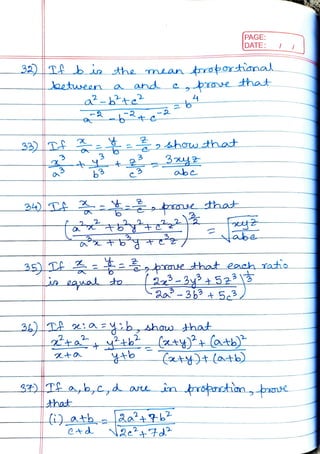 PAGE:
DATE: / /
32) If b is the mean proportional
between a and c, prove that
a² - b² + c² / a⁻² - b⁻² + c⁻² = b⁴
33) If x/a = y/b = z/c, show that
x³/a³ + y³/b³ + z³/c³ = 3xyz/abc
34) If x/a = y/b = z/c, prove that
(a²x² + b²y² + c²z² / a³x + b³y + c³z)^3/2 = √xyz/abc
35) If x/a = y/b = z/c, prove that each ratio
is equal to (2x³ - 3y³ + 5z³ / 2a³ - 3b³ + 5c³)^1/3
36) If x:a = y:b, show that
x² + a² / x + a + y² + b² / y + b = (x+y)² + (a+b)² / (x+y) + (a+b)
37) If a, b, c, d are in proportion, prove
that
(i) a+b / c+d = √2a² + 7b² / 2c² + 7d²